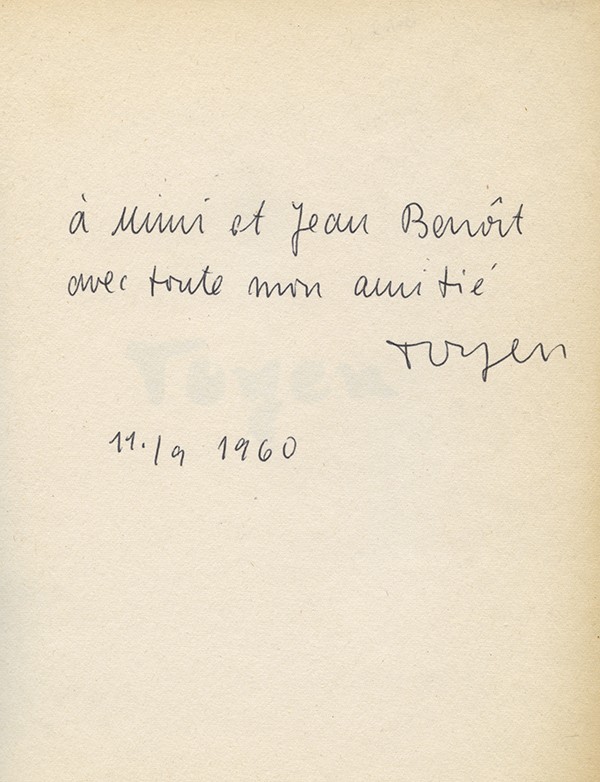 à Mimi et Jean Benoît
avec toute mon amitié
Toyen
Toyen
11./9 1960